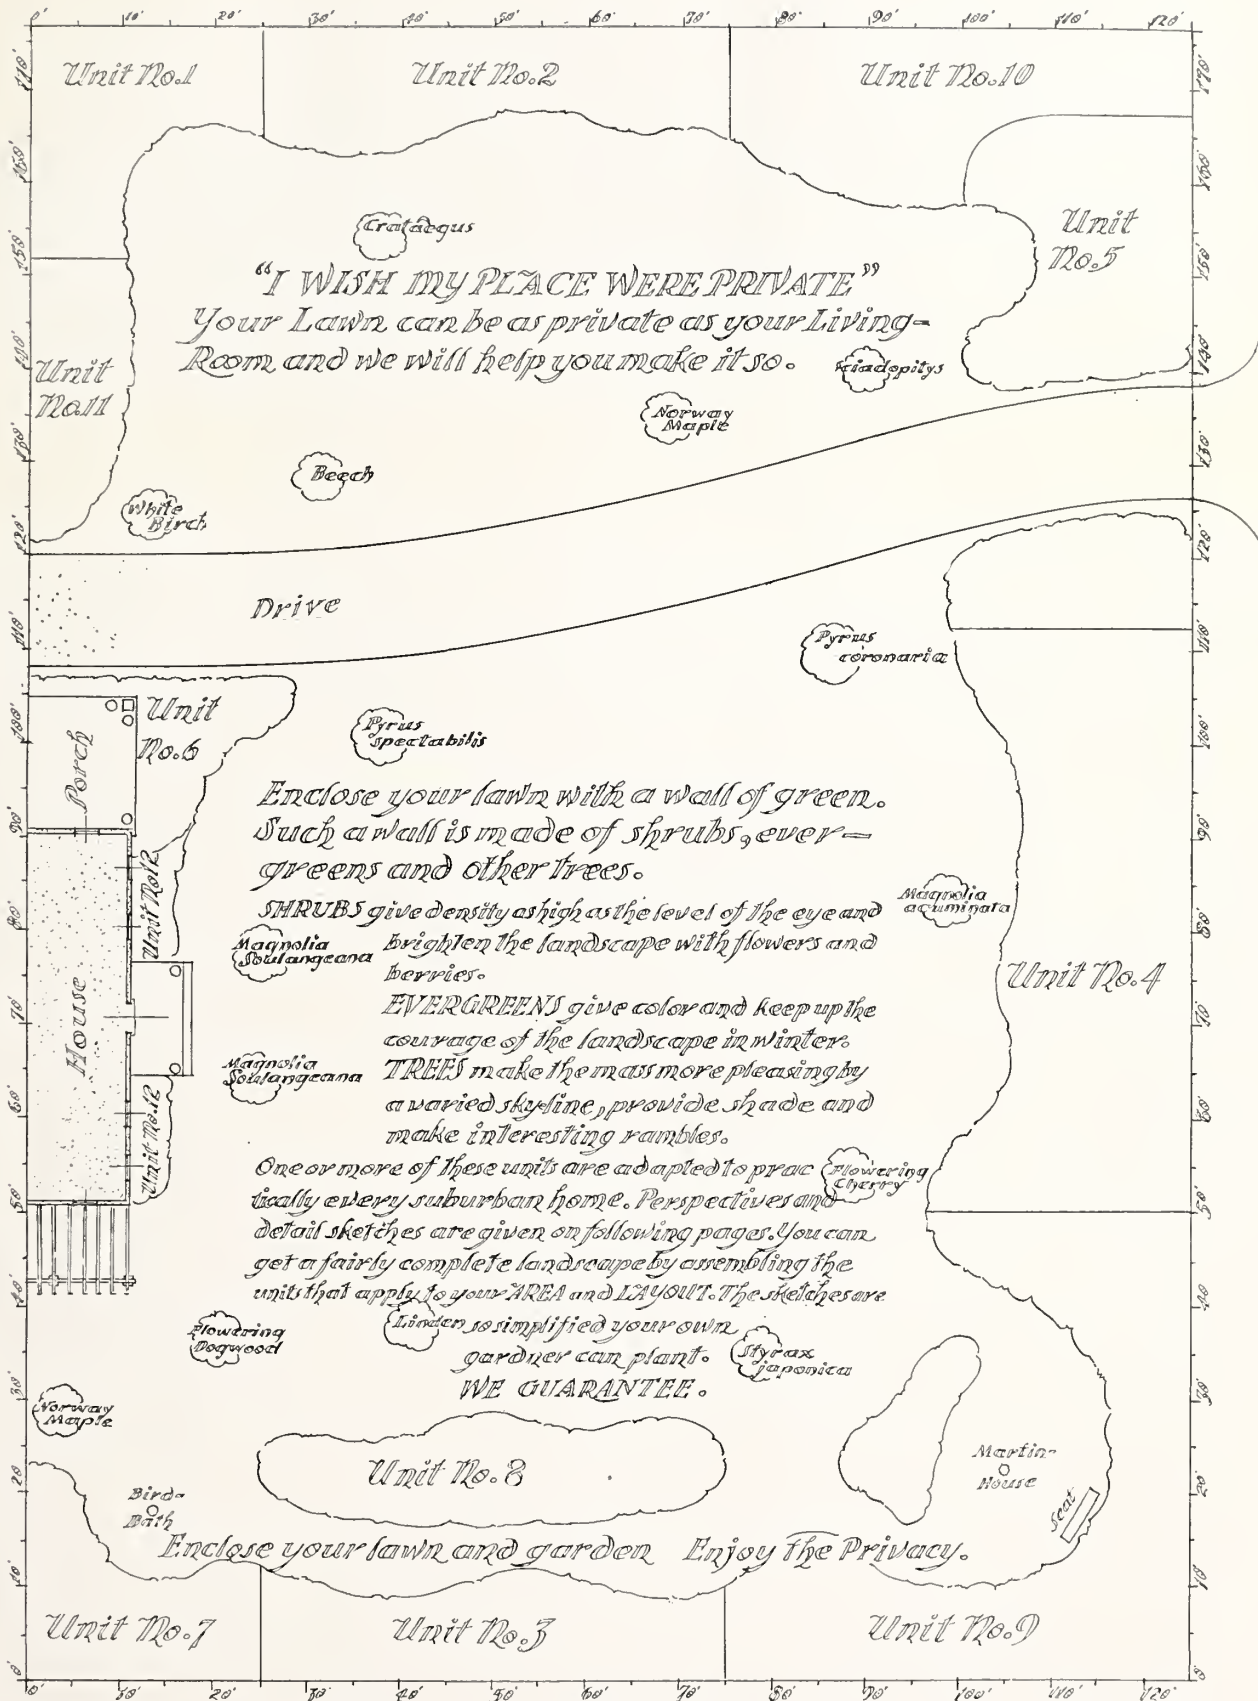 0' 10' 20' 30' 40' 50' 60' 70' 80' 90' 100' 110' 120'
Unit No.1
Unit No.2
Unit No.10
Unit
No.5
Crataegus
"I WISH MY PLACE WERE PRIVATE"
Your Lawn can be as private as your Living-
Room and we will help you make it so.
Unit
No.11
Sciadopitys
Norway
Maple
Beech
White
Birch
Drive
Pyrus
coronaria
Unit
No.6
Porch
Pyrus
spectabilis
Enclose your lawn with a wall of green.
Such a wall is made of shrubs, ever-
greens and other trees.
SHRUBS give density as high as the level of the eye and
brighten the landscape with flowers and
berries.
EVERGREENS give color and keep up the
courage of the landscape in winter.
TREES make the mass more pleasing by
a varied sky-line, provide shade and
make interesting rambles.
One or more of these units are adapted to prac
tically every suburban home. Perspectives and
detail sketches are given on following pages. You can
get a fairly complete landscape by assembling the
units that apply to your AREA and LAYOUT. The sketches are
so simplified your own
gardner can plant.
WE GUARANTEE.
Unit No.12
Magnolia
Soulangeana
Magnolia
acuminata
Unit No.4
House
Magnolia
Soulangeana
Unit No.12
Flowering
Cherry
Flowering
Dogwood
Linden
Styrax
japonica
Norway
Maple
Unit No.8
Martin-
House
Seat
Bird-
Bath
Enclose your lawn and garden Enjoy the Privacy.
Unit No.7
Unit No.3
Unit No.9
170' 160' 150' 140' 130' 120' 110' 100' 90' 80' 70' 60' 50' 40' 30' 20' 10' 0'
170' 160' 150' 140' 130' 120' 110' 100' 90' 80' 70' 60' 50' 40' 30' 20' 10' 0'
0' 10' 20' 30' 40' 50' 60' 70' 80' 90' 100' 110' 120'